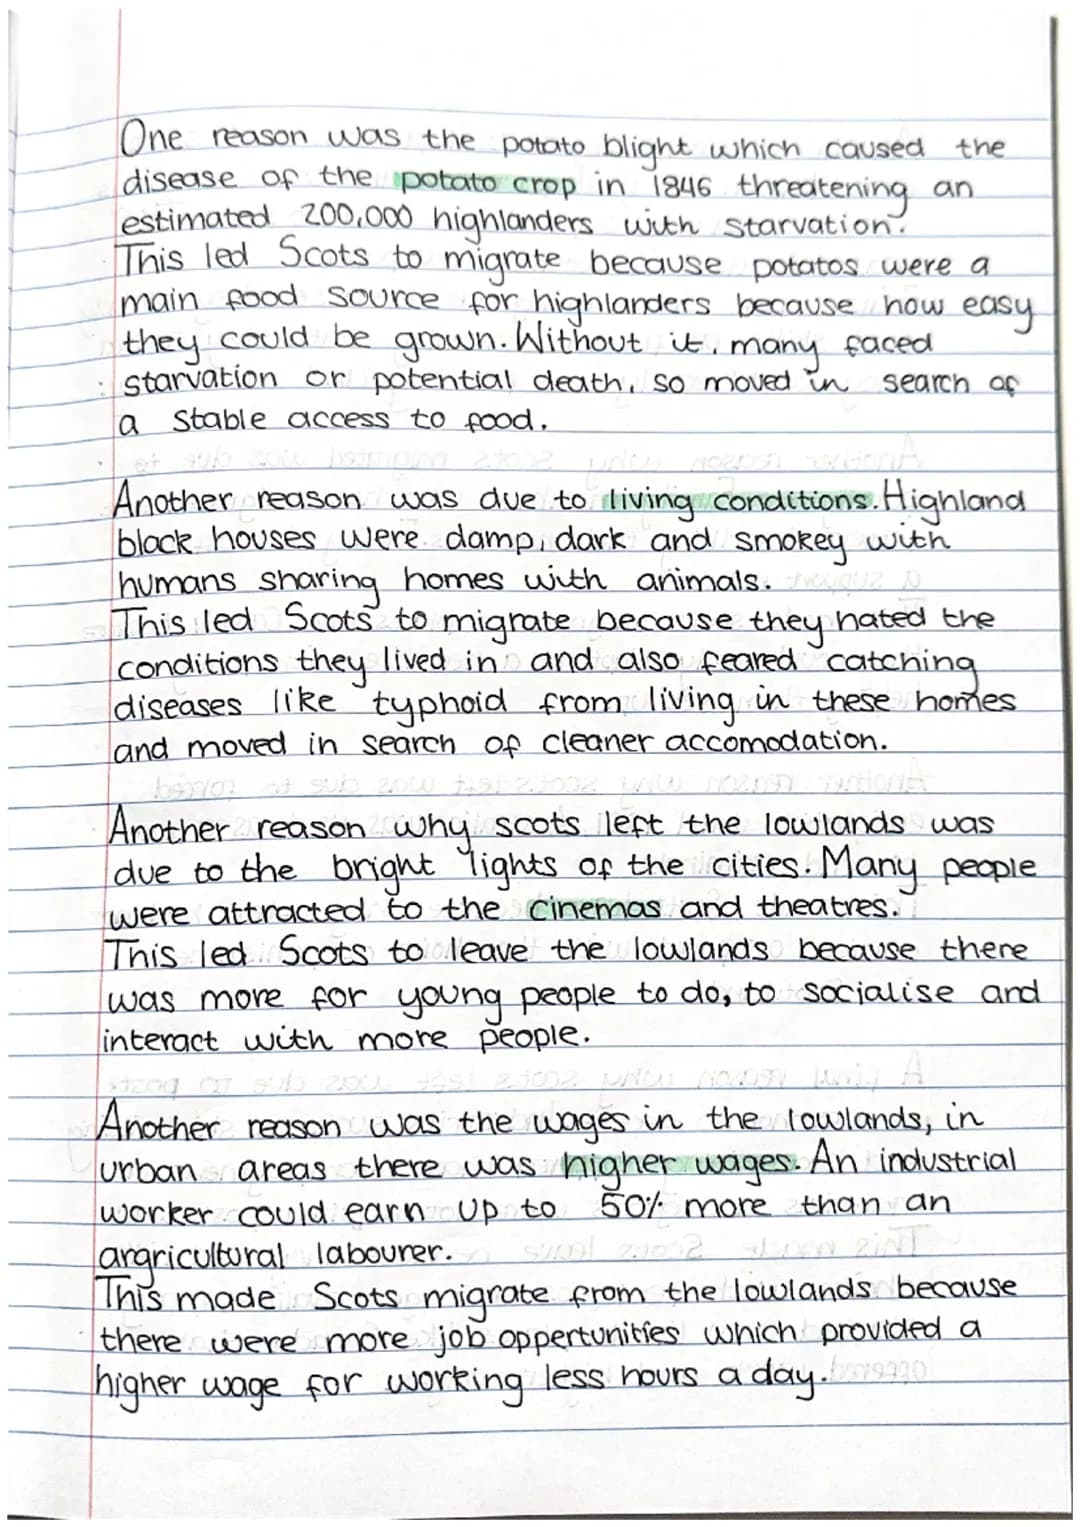 One reason was the potato blight which caused the
disease of the potato crop in 1846 threatening an
estimated 200,000 highlanders with starvation.
This led Scots to migrate because potatos were a
main food source for highlanders because how easy
they could be grown. Without it, many faced
starvation or potential death, so moved in search of
a stable access to food.
Another reason was due to living conditions. Highland
black houses were damp, dark and smokey with
humans sharing homes with animals.
This led Scots to migrate because they hated the
conditions they lived in and also feared catching
diseases like typhoid from living in these homes
and moved in search of cleaner accomodation.
Another reason why scots left the lowlands was
due to the bright lights of the cities. Many people
were attracted to the cinemas and theatres.
This led Scots to leave the lowlands because there
was more for young people to do, to socialise and
interact with more people.
Another reason was the wages in the lowlands, in
urban areas there was higher wages. An industrial
worker could earn up to 50% more than an
argricultural labourer.
This made Scots migrate from the lowlands because
there were more job oppertunities which provided a
higher wage for working less hours a day.